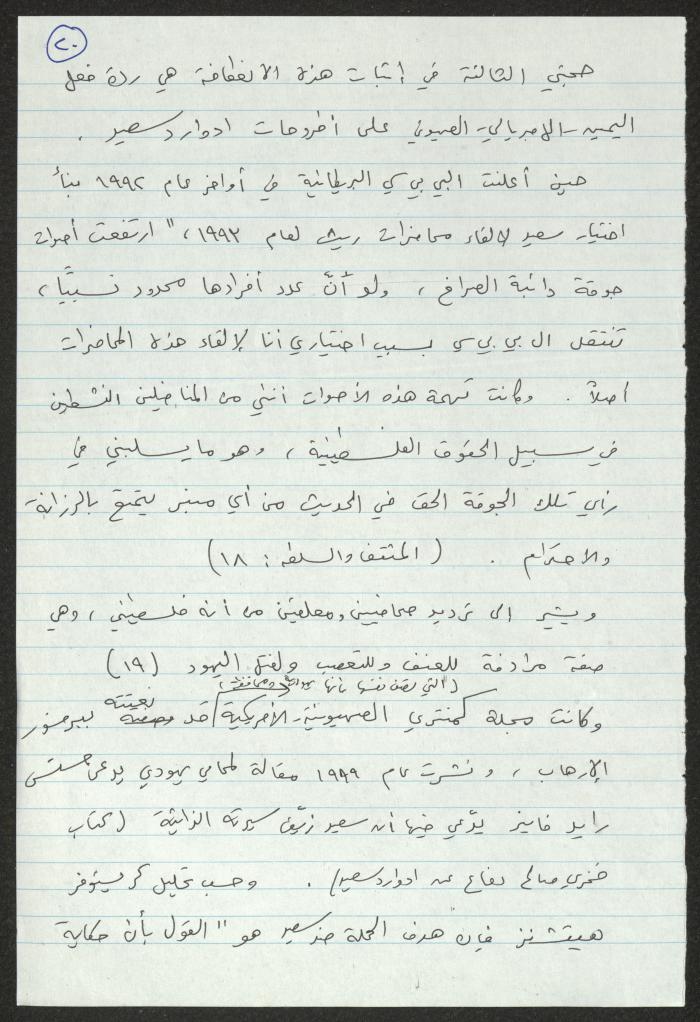 ٢٠
حجتي الثالثة في إثبات هذه الانعطافة هي ردة فعل
اليمين - الامبريالي - الصهيوني على أطروحات ادوارد سعيد .
حين أعلنت البي بي سي البريطانية في أواخر عام ١٩٩٢ نبأ
اختيار سعيد لالقاء محاضرات ريث لعام ١٩٩٣ ، " ارتفعت أصوات
جوقة دائبة الصراخ ، ولو أنّ عدد أفرادها محدود نسبيًّا ،
تنتقد ال بي بي سي بسبب اختياري أنا لإلقاء هذه المحاضرات
أصلاً . وكانت تهمة هذه الأصوات أنني من المناضلين النشطين
في سبيل الحقوق الفلسطينية ، وهو ما يسلبني في
رأي تلك الجوقة الحق في الحديث من أي منبر يتمتع بالرزانة
والاحترام . ( المثقف والسلطة : ١٨ )
ويشير إلى ترديد صحافيين ومعلقين من أنه فلسطيني ، وهي
صفة مرادفة للعنف وللتعصب ولقتل اليهود ( ١٩ )
( التي تصف نفسها بأنها يهودية ومحافظة )
وكانت مجلة كمنتري الصهيونية - الأمريكية قد نعتته ببرفسور
الإرهاب ، ونشرت عام ١٩٩٩ مقالة لمحامي يهودي يدعى جستس
رايد فاينر يدّعي فيها أن سعيد زيّف سيرته الذاتية ( كتاب
فخري صالح دفاع عن ادوارد سعيد ) . وحسب تحليل كريستوفر
هيتشنز فإن هدف الحملة ضد سعيد هو " القول بأن حكاية